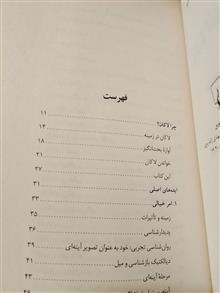 فهرست
چرا لاکان؟ ۱۱
لاکان در زمینه ۱۴
آوازهٔ بحث‌انگیز ۱۸
خواندن لاکان ۲۱
این کتاب ۲۷
ایده‌های اصلی ۳۱
۱. امر خیالی ۳۳
زمینه و تأثیرات ۳۵
پدیدارشناسی
روان‌شناسی تجربی: خود به عنوان تصویر آینه‌ای ۳۹
دیالکتیک بازشناسی و میل ۴۱
مرحلهٔ آینه‌ای ۴۳